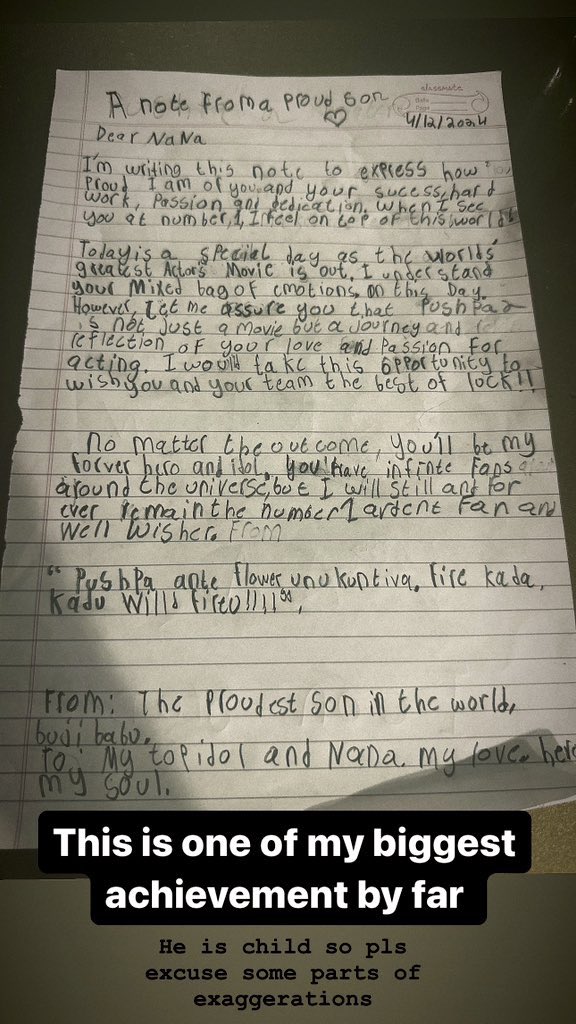 A note from a proud son
classmate
Date
Page
4/12/2024
Dear NaNa
I'm writing this note to express how
proud I am of you and your sucess, hard
work, passion and dedication. When I see
you at number 1, I feel on top of this world
Today is a special day as the worlds
greatest Actor's Movie is out. I understand
your Mixed bag of emotions on this Day.
However, Let me assure you that Pushpa 2
is not just a movie but a journey and
reflection of your love and Passion for
acting. I would take this opportunity to
wish you and your team the best of luck!!
No matter the outcome, you'll be my
forver hero and idol. you'll have infinte fans
around the universe, but I will still and for
ever remain the number 1 ardent fan and
well wisher. From
"Pushpa ante flower unukuntiva, fire kada,
kadu willd fireU!!!!",
From: The proudest son in the world,
buji babu.
To: My top idol and Nana. my love. hero
my soul.
This is one of my biggest
achievement by far
He is child so pls
excuse some parts of
exaggerations